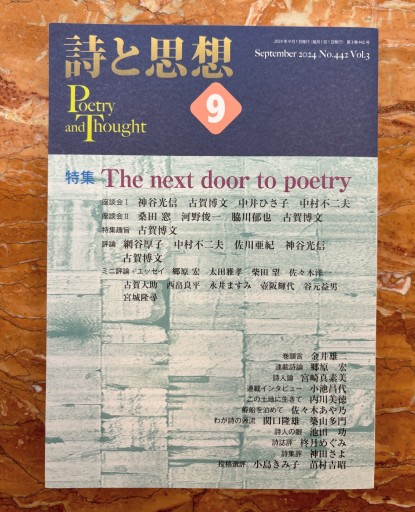 2024年9月1日発行（毎月1回1日発行）第3巻442号
詩と思想
September 2024 No.442 Vol.3
Poetry
and Thought
9
特集 The next door to poetry
座談会Ⅰ 神谷光信 古賀博文 中井ひさ子 中村不二夫
座談会Ⅱ 桑田 窓 河野俊一 脇川郁也 古賀博文
特集趣旨 古賀博文
評論 網谷厚子 中村不二夫 佐川亜紀 神谷光信
古賀博文
ミニ評論・エッセイ 郷原 宏 太田雅孝 柴田 望 佐々木洋一
古賀大助 西畠良平 永井ますみ 壺阪輝代 谷元益男
宮城隆尋
巻頭言 金井雄二
連載詩論 郷原 宏
詩人論 宮崎真素美
連載インタビュー 小池昌代
この土地に生きて 内川美徳
船を泊めて 佐々木あや乃
わが詩の源流 関口隆雄 築山多門
詩人の眼 池田 功
詩誌評 柊月めぐみ
詩集評 神田さよ
投稿選評 小島きみ子 苗村吉昭